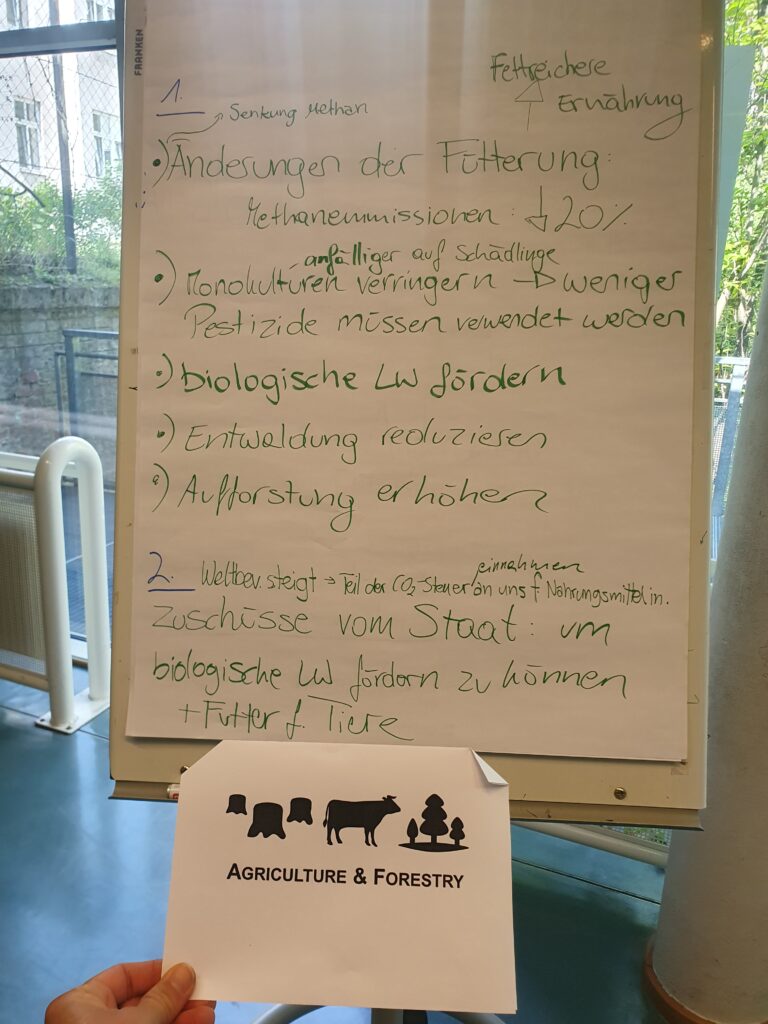 FRANKEN
Fettreichere
Ernährung
1.
Senkung Methan
•) Änderungen der Fütterung:
Methanemmissionen: ↓ 20%
anfälliger auf Schädlinge
•) Monokulturen verringern → weniger
Pestizide müssen verwendet werden
•) biologische LW fördern
•) Entwaldung reduzieren
•) Aufforstung erhöhen
einnahmen
2. Weltbev. steigt → Teil der CO2-Steuer an uns f. Nahrungsmittelin.
Zuschüsse vom Staat: um
biologische LW fördern zu können
+ Futter f. Tiere
AGRICULTURE & FORESTRY